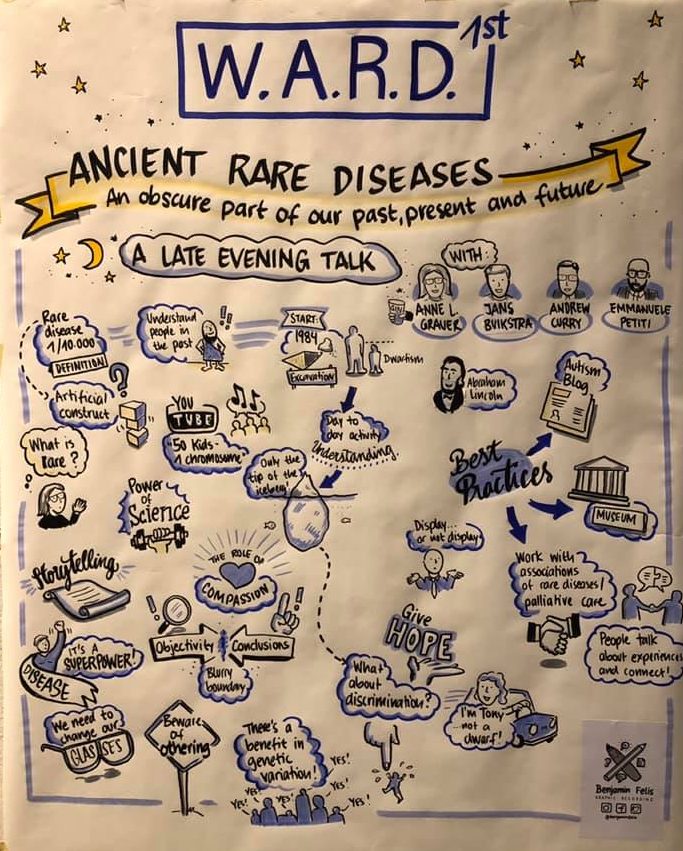 W.A.R.D. 1st
ANCIENT RARE DISEASES
An obscure part of our past, present and future
A LATE EVENING TALK
WITH:
ANNE L.
GRAUER
JANS
BUIKSTRA
ANDREW
CURRY
EMMANUELE
PETITI
Rare
disease
1/10.000
DEFINITION
Understand
people in
the past
!!
START:
1984
Excavation
Dwarfism
Abraham
Lincoln
Autism
Blog
Artificial
construct
?
YOU
TUBE
"50 Kids-
1 chromosome"
Day to
day activity
Understanding
What is
Rare?
Only the
tip of the
iceberg!
Best
Practices
MUSEUM
Power
of
Science
Display...
or not display
Storytelling
THE ROLE OF
COMPASSION
Work with
associations
of rare diseases/
palliative care
People talk
about experiences
and connect!
Give
HOPE
IT'S A
SUPERPOWER!
DISEASE
Objectivity
Conclusions
Blurry
boundary
What
about
discrimination?
I'm Tony
...not a
dwarf!
We need to
change our
GLASSES
Beware
of
othering
There's a
benefit in
genetic
variation!
YES!
YES!
YES!
YES!
YES!
YES!
Benjamin Felis
GRAPHIC RECORDING